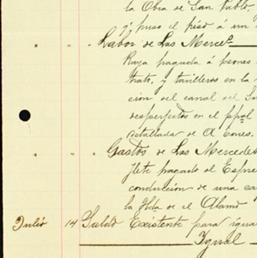 la Obra de San Pablo,
y puso el piso á un
Labor de Las Merced.
Raya pagada á peones
trato, y tanilleros en la
cion del canal del
desperfectos en el ppal
Gastos de Las Mercedes
Flete pagado al Espre
conduccion de una ca
la Hda de el Alamo
Julio 14 Saldo Existente para igua
Igual